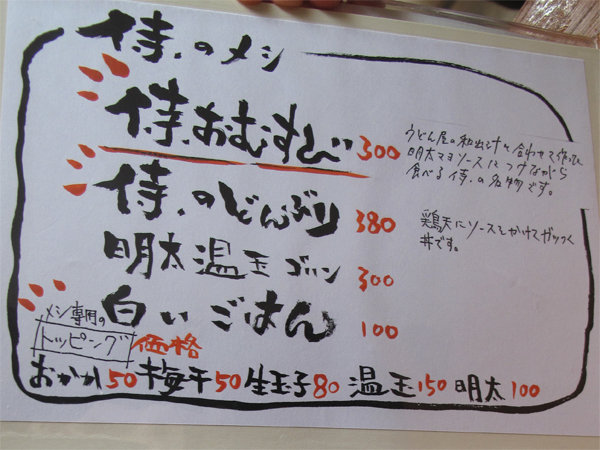 侍、のメシ
侍、おむすび 300
うどん屋の和出汁と合わせて作った
明太マヨソースにつけながら
食べる侍、の名物です。
侍、のどんぶり 380
鶏天にソースをかけてガッつく
丼です。
明太温玉ゴハン 300
白いごはん 100
メシ専用の
トッピング 価格
おかか50 梅干50 生玉子80 温玉150 明太100